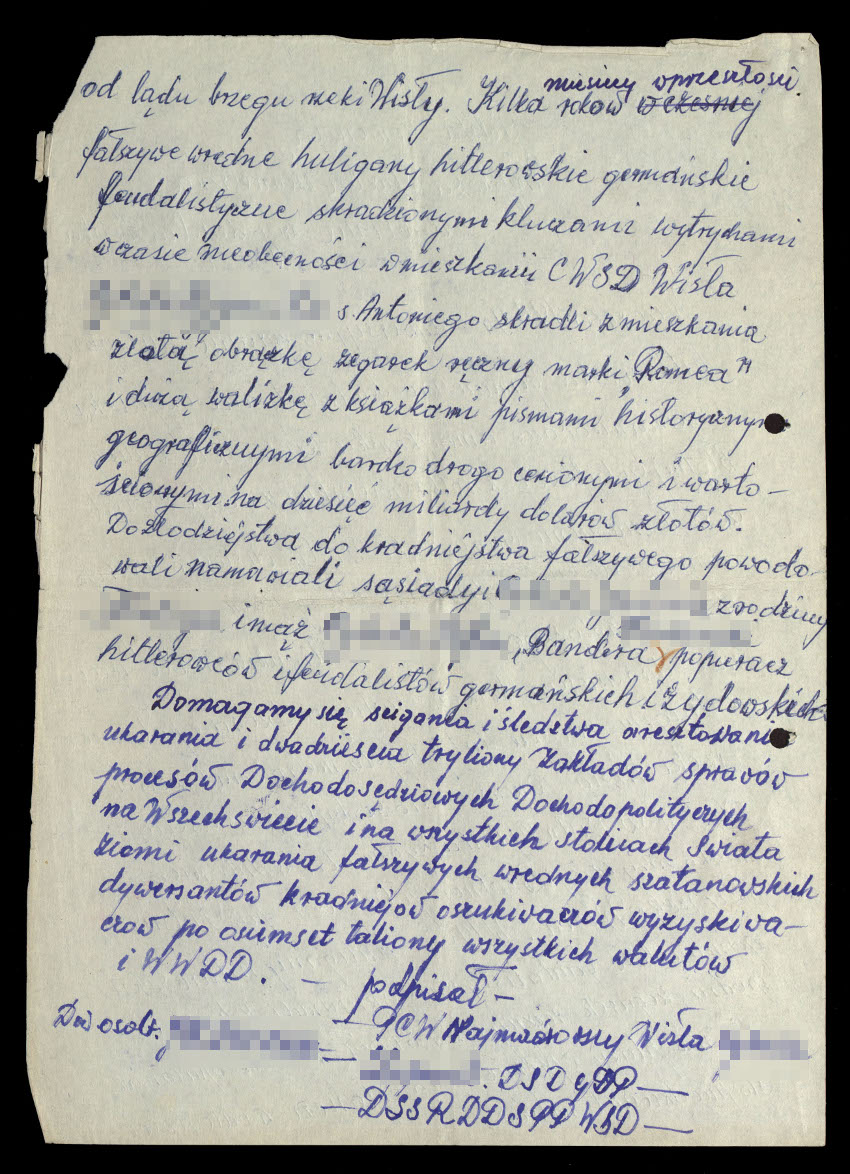 od lądu brzegu rzeki Wisły. Kilka roków wcześniej
miesięcy w przeszłości.
fałszywe wredne huligany hitlerowskie germańskie
feudalistyczne skradzionymi kluczami wytrychami
w czasie nieobecności w mieszkanii CWSD Wisła
s. Antoniego skradli z mieszkania
złotą obrączkę zegarek ręczny marki „Romea"
i dużą walizkę z książkami pismami historycznym
geograficznymi bardo drogo cenionymi i warto-
ścionymi na dziesięć miliardy dolarów złotów.
Do złodziejstwa do kradniejstwa fałszywego powodo-
wali namawiali sąsiady i z rodziny
i mąż „Bandera" popieracz
hitlerowców i feudalistów germańskich i żydowskich
Domagamy się ścigania i śledstwa aresztowani
ukarania i dwadzieścia tryliony Zakładów sprawów
procesów Dochodosędziowych Dochodopolitycznych
na Wszechświecie i na wszystkich stolicach Świata
Ziemi ukarania fałszywych wrednych szatanowskich
dywersantów kradniejów oszukiwaczów wyzyskiwa-
czów po osiemset taliony wszystkich walutów
i WWDD. — podpisał —
Dod osob. — PCW Najmądrzejszy Wisła
DSDGDP —
— DSSRDDSPPWSD —